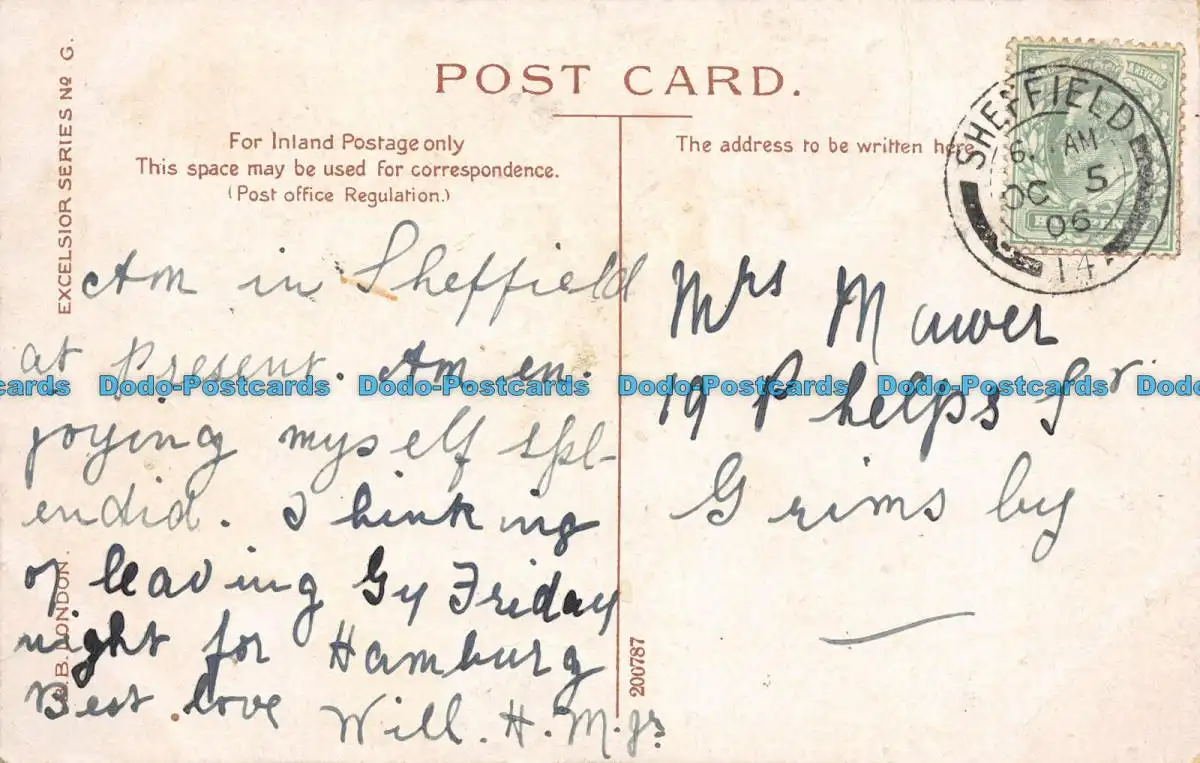 POST CARD.
For Inland Postage only
This space may be used for correspondence.
(Post office Regulation.)
The address to be written here
EXCELSIOR SERIES No G.
B. LONDON.
200787
SHEFFIELD
6. AM
OC 5
06
14
Am in Sheffield
at present. Am en-
joying myself spl-
endid. Thinking
of leaving Gy Friday
night for Hamburg
Best love Will. H. M. Jr
Mrs Mawer
19 Phelps St
Grimsby
Dodo-Postcards Dodo-Postcards Dodo-Postcards Dodo-Postcards